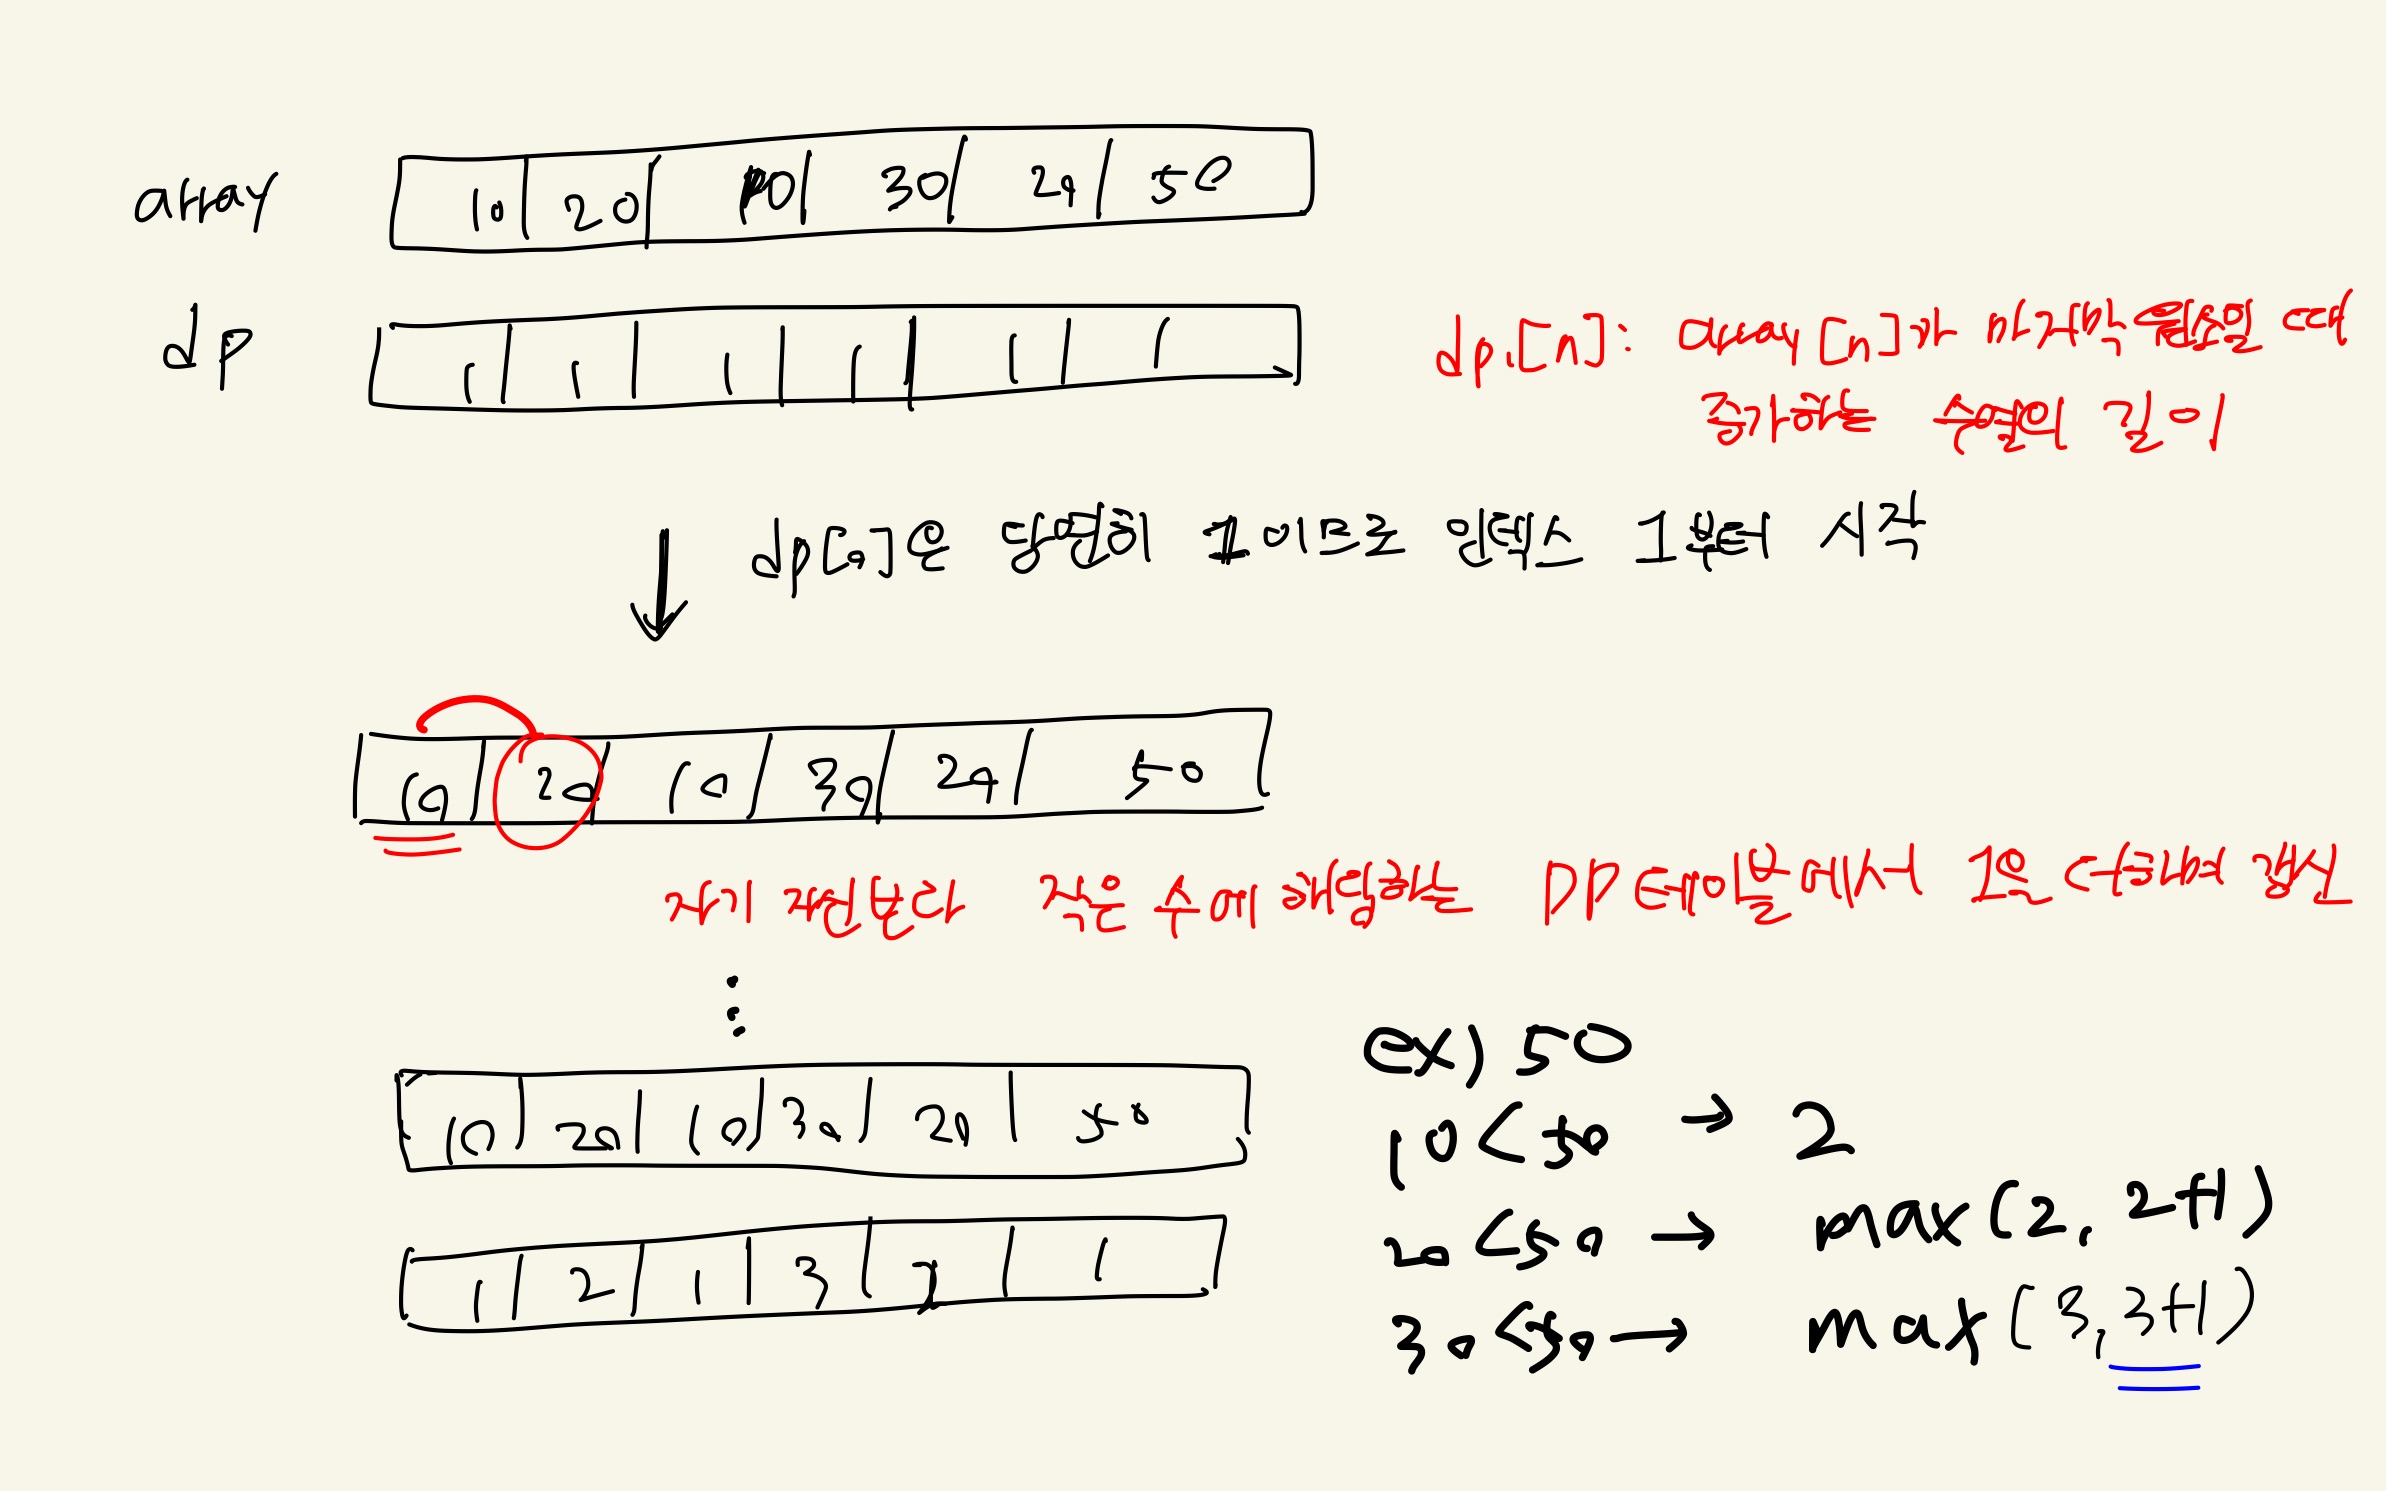 array 10 20 10 30 20 50
dp 1 1 1 1 1 1
dp[n]: array[n]가 마지막 원소일 때
증가하는 수열의 길이
dp[0]은 당연히 1이므로 인덱스 1부터 시작
10 20 10 30 20 50
자기 전보다 작은 수에 해당하는 DP테이블에서 1을 더해서 갱신
⋮
10 20 10 30 20 50
1 2 1 3 2 1
ex) 50
10 < 50 → 2
20 < 50 → max(2, 2+1)
30 < 50 → max(3, 3+1)